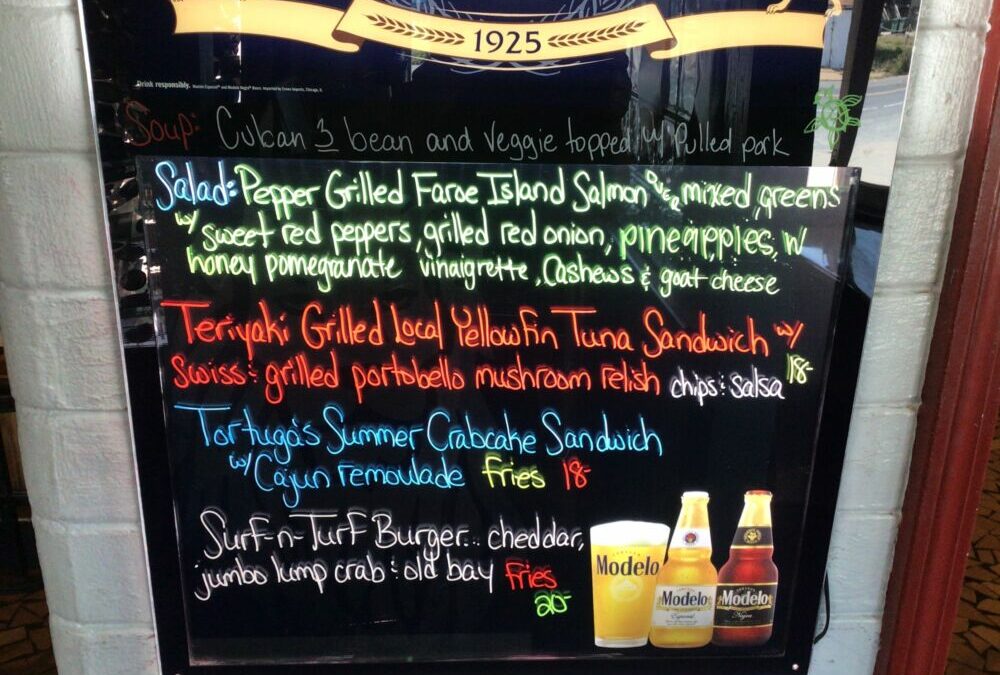 1925
Drink responsibly.
Soup: Cuban 3 bean and veggie topped w/ Pulled pork
Salad: Pepper Grilled Faroe Island Salmon over mixed greens
w/ sweet red peppers, grilled red onion, pineapples, w
honey pomegranate vinaigrette, Cashews & goat cheese
Teriyaki Grilled Local Yellowfin Tuna Sandwich w/
Swiss & grilled portobello mushroom relish chips & salsa 18-
Tortuga's Summer Crabcake Sandwich
w/ Cajun remoulade fries 18-
Surf-n-Turf Burger... cheddar,
jumbo lump crab & old bay fries
20-
Modelo
Modelo
Especial
Modelo
Negra